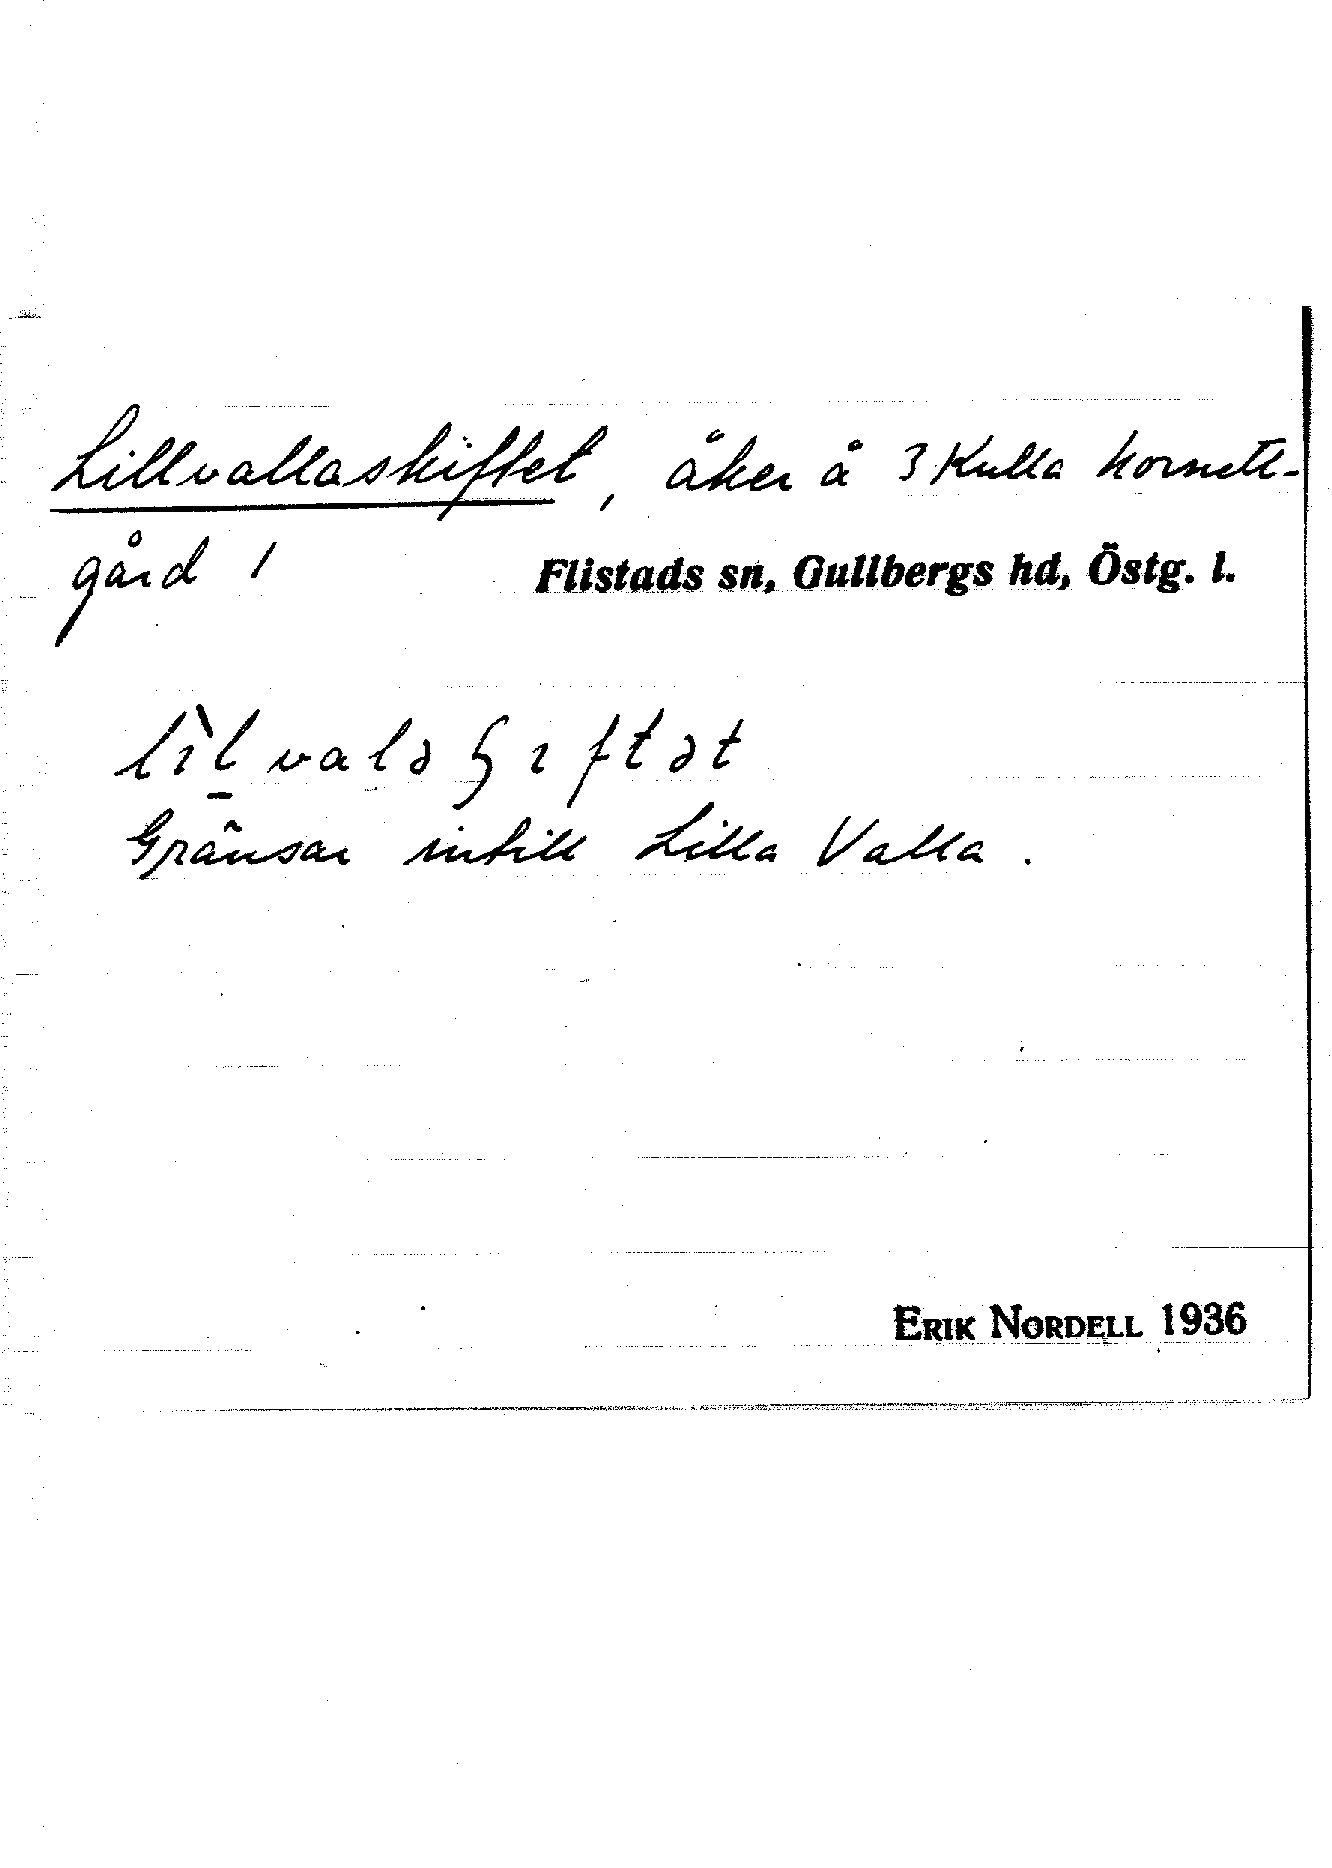 Lillvallaskiftet, åker å 3 Kulla Kornett-
gård 1
Flistads sn, Gullbergs hd, Östg. l.
lìl̠valəɧıftət
Gränsar intill Lilla Valla.
ERIK NORDELL 1936